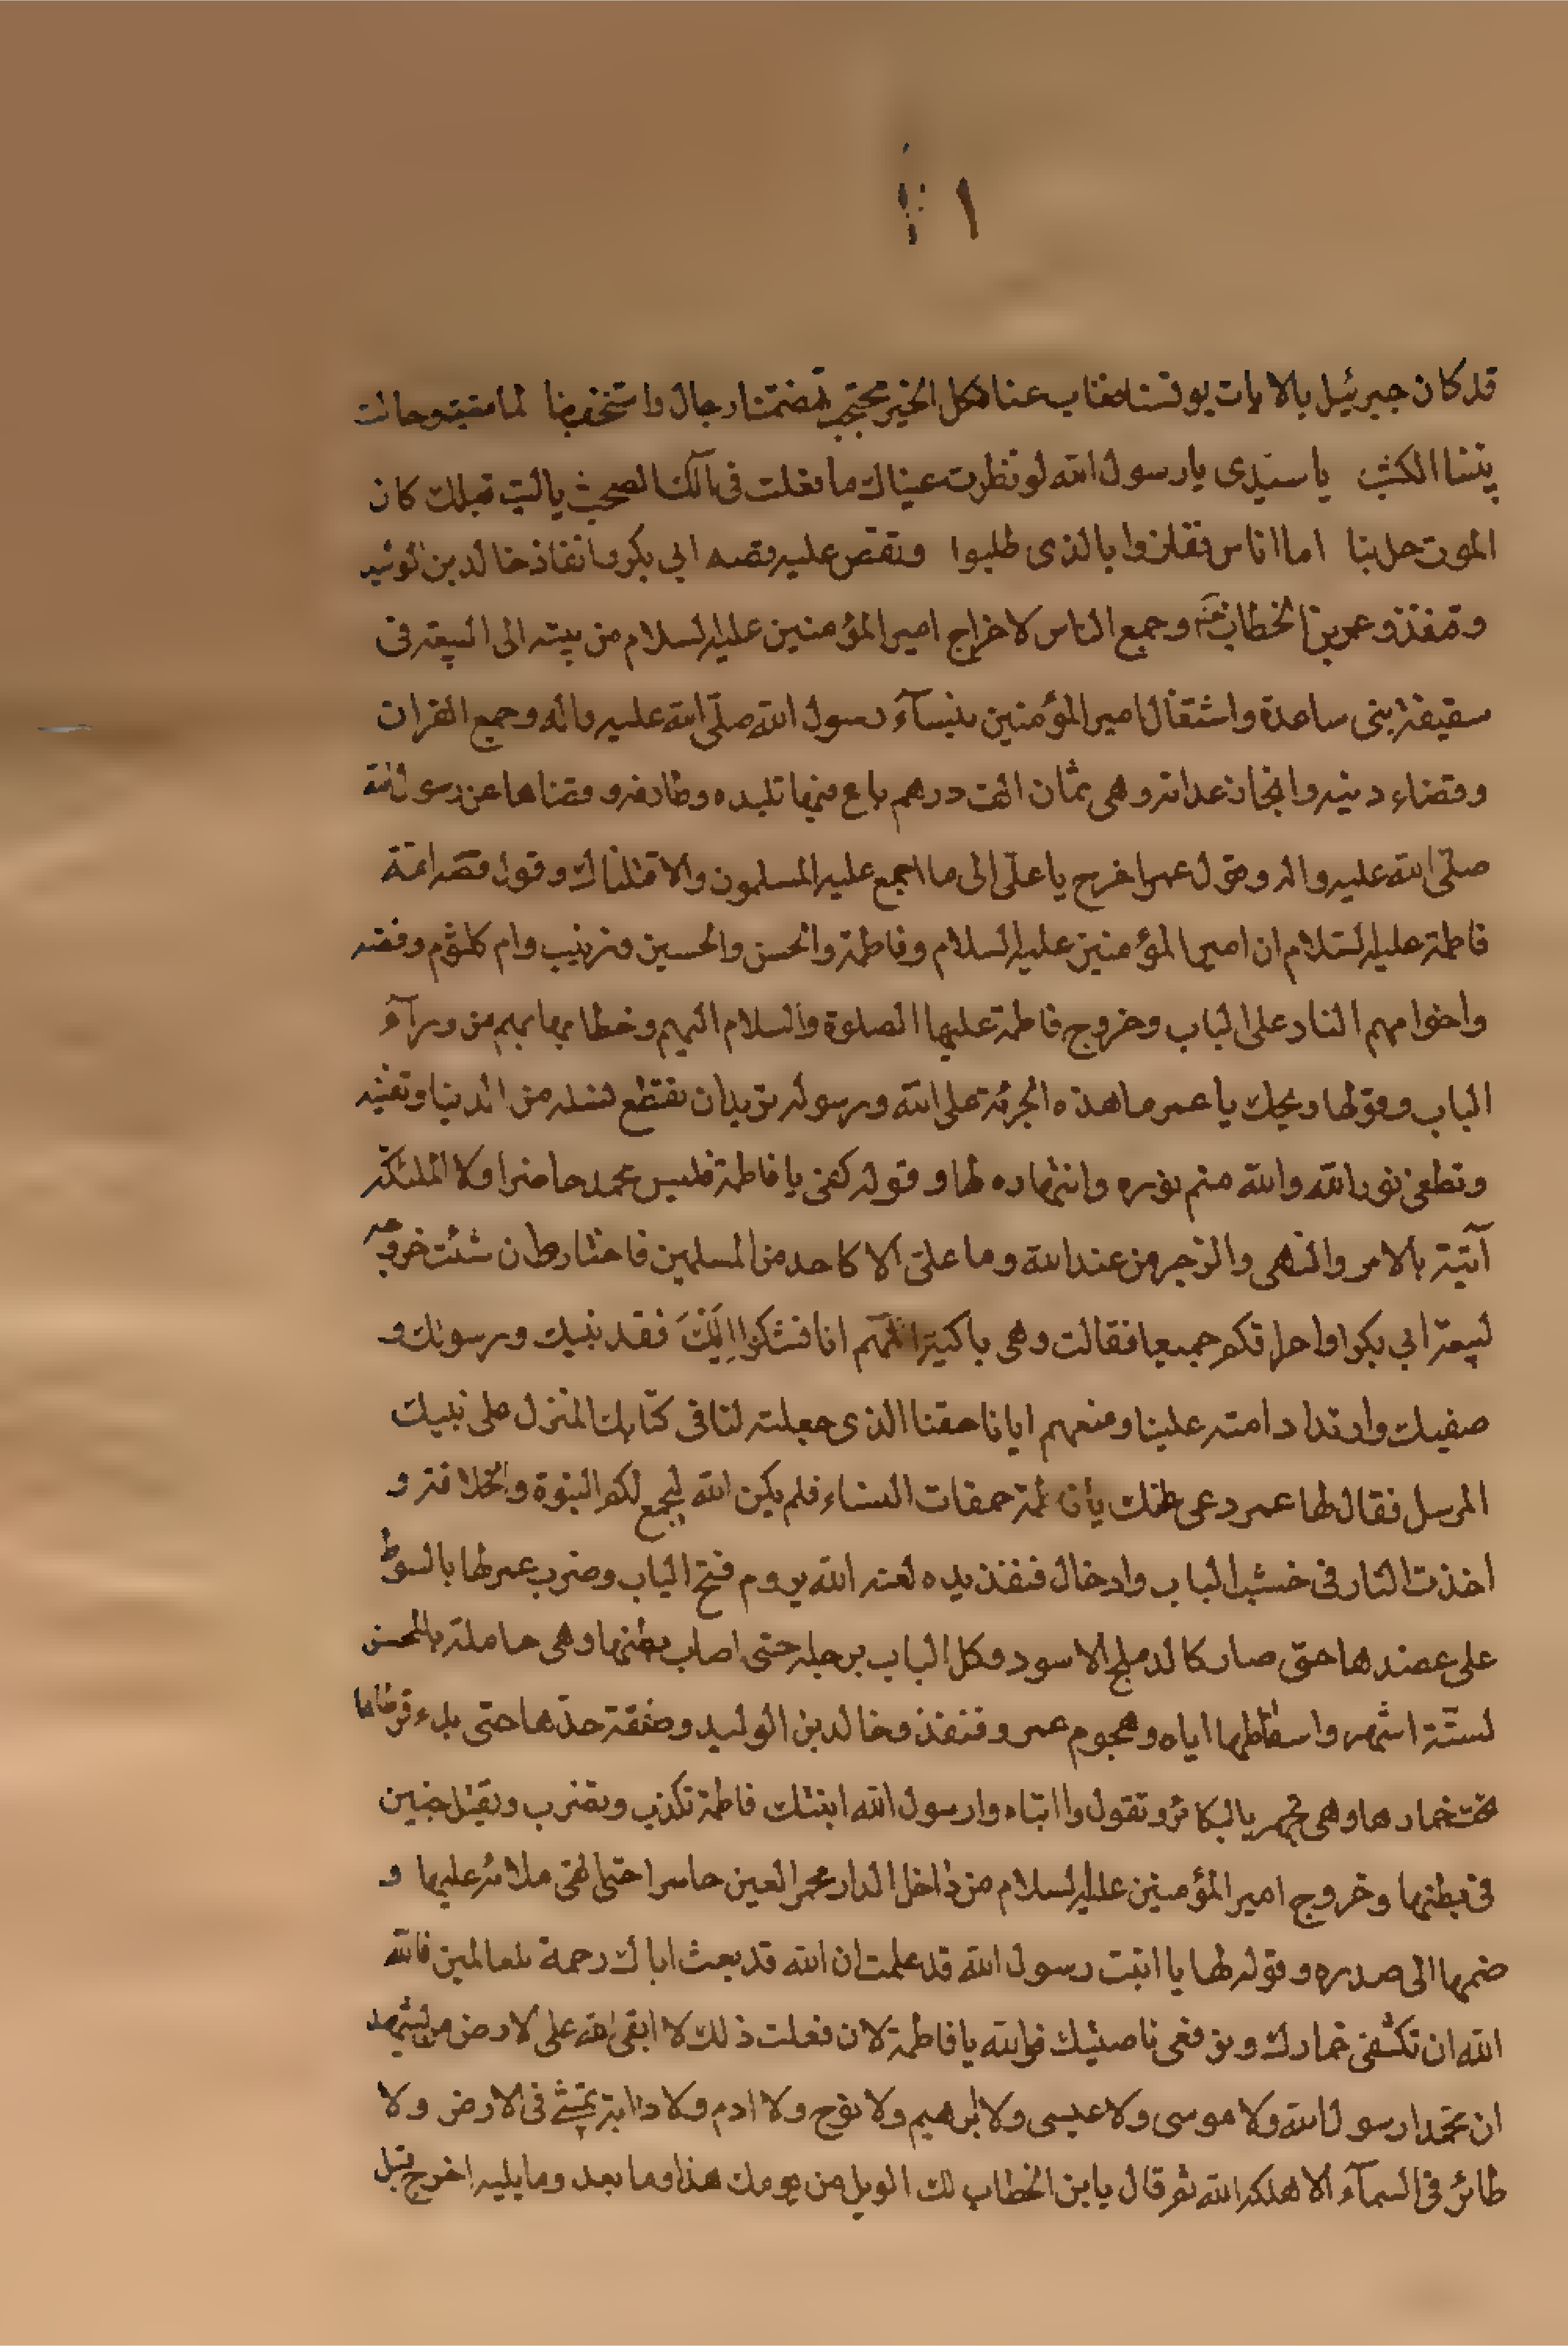 قد كان جبرئيل بالايات يونسنا فغاب عنا فكل الخير محتجب تهضمتنا رجال واستخف بنا لما مضيت وحالت
بيننا الكثب يا سيدى يا رسول الله لو نظرت عيناك ما فعلت فى آلك الصحب يا ليت قبلك كان
الموت حل بنا اما اناس فقان وا بالذى طلبوا وتقص عليه قصه ابي بكر وانفاذ خالد بن الوليد
وقنفذ وعمر بن الخطاب وجمع الناس لاخراج امير المؤمنين عليه السلام من بيته الى البيعة فى
سقيفة بنى ساعدة واشتغال امير المؤمنين بنسآء رسول الله صلى الله عليه واله وجمع القران
وقضاء دينه وانجاز عداته وهى ثمان الف درهم باع فيها تليده وطارفه وقضاها عن رسول الله
صلى الله عليه واله وقول عمر اخرج يا على الى ما اجمع عليه المسلمون والا قتلناك وقول فضة امة
فاطمة عليها السلام ان امير المؤمنين عليه السلام وفاطمة والحسن والحسين وزينب وام كلثوم وفضه
واضرامهم النار على الباب وخروج فاطمة عليها الصلوة والسلام اليهم وخطابها بهم من ورآء
الباب وقولها ويحك يا عمر ما هذه الجرئة على الله ورسوله تريد ان تقطع نسله من الدنيا وتفنيه
وتطفئ نور الله والله متم نوره وانتهاره لها وقوله كفى يا فاطمة فليس محمد حاضرا ولا الملئكة
آتية بالامر والنهى والزجر من عند الله وما على الا كاحد من المسلمين فاختارى ان شئت خروجه
لبيعة ابي بكر او احراقكم جميعا فقالت وهى باكية اللهم انا نشكوا اليك فقد نبيك ورسولك و
صفيك وارتداد امته علينا ومنعهم ايانا حقنا الذى جعلته لنا فى كتابك المنزل على نبيك
المرسل فقال لها عمر دعى عنك يا فاطمة حمقات النساء فلم يكن الله ليجمع لكم النبوة والخلافة و
اخذت النار فى خشب الباب وادخال قنفذ يده لعنه الله يروم فتح الباب وضرب عمر لها بالسوط
على عضدها حتى صار كالدملج الاسود وركل الباب برجله حتى اصاب بطنها وهى حاملة بالمحسن
لستة اشهر واسقاطها اياه وهجوم عمر وقنفذ وخالد بن الوليد وصفقة خدها حتى بدء قرطاها
تحت خمارها وهى تجهر بالبكائ وتقول وا ابتاه وا رسول الله ابنتك فاطمة تكذب وتضرب ويقتل جنين
فى بطنها وخروج امير المؤمنين عليه السلام من داخل الدار محمر العين حاسرا حتى القى ملائته عليها و
ضمها الى صدره وقوله لها يا ابنت رسول الله قد علمت ان الله قد بعث اباك رحمة للعالمين فالله
الله ان تكشفى خمارك وترفعى ناصيتك فوالله يا فاطمة لان فعلت ذلك لا ابقى الله على الارض من يشهد
ان محمدا رسول الله ولا موسى ولا عيسى ولا ابرهيم ولا نوح ولا ادم ولا دابة تمشى فى الارض ولا
طائر فى السمآء الا اهلكه الله ثم قال يابن الخطاب لك الويل من يومك هذا وما بعده وما يليه اخرج قبل